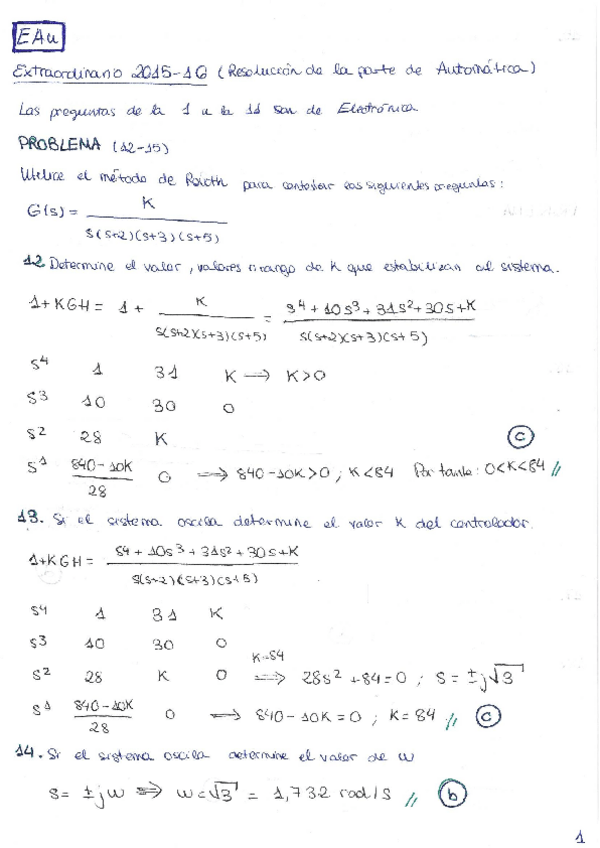 EAu
Extraordinario 2015-16 (Resolución de la parte de Automática)
Las preguntas de la 1 a la 11 son de Electrónica
PROBLEMA (12-15)
Utilice el método de Routh para contestar las siguientes preguntas:
G(s) = K / s(s+2)(s+3)(s+5)
12. Determine el valor, valores o rango de K que estabilizan al sistema.
1+KGH = 1 + K / s(s+2)(s+3)(s+5) = s⁴+10s³+31s²+30s+K / s(s+2)(s+3)(s+5)
s⁴ 1 31 K → K>0
s³ 10 30 0
s² 28 K (c)
s¹ 840-10K / 28 0 ⟹ 840-10K>0 ; K<84 Por tanto: 0<K<84 //
13. Si el sistema oscila determine el valor K del controlador.
1+KGH = s⁴+10s³+31s²+30s+K / s(s+2)(s+3)(s+5)
s⁴ 1 31 K
s³ 10 30 0
s² 28 K 0 K=84 ⟹ 28s²+84=0 ; s=±j√3
s¹ 840-10K / 28 0 ⟹ 840-10K=0 ; K=84 // (c)
14. Si el sistema oscila determine el valor de ω
s= ±jω ⟹ ω=√3 = 1,732 rad/s // (b)
1